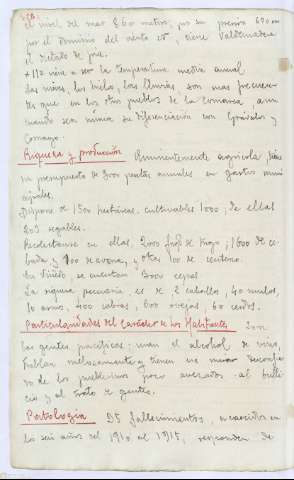 el nivel del mar 860 metros, por su presión 690 mm
por el dominio del viento es, tiene Valdemadera
el dictado de fría.
+11º viene a ser la temperatura media anual
las nieves, los hielos, las lluvias son mas frecuen-
tes que en los otros pueblos de la comarca, aun
cuando sea mínima su diferenciación con Grávalos y
Cornago.
Riqueza y producción Eminentemente agrícola tiene
un presupuesto de 3000 pesetas anuales en gastos muni
cipales.
Dispone de 1500 hectáreas, cultivables 1000, de ellas
203 regables.
Recolectanse en ellas, 2000 fngs de trigo, 1600 de ce-
bada y 100 de avena, y otras 100 de centeno.
En viñedo, se cuentan 3000 cepas.
La riqueza pecuaria es de 2 caballos, 40 mulos,
10 asnos, 400 cabras, 600 ovejas, 60 cerdos.
Particularidades del Carácter de los Habitantes Son
las gentes pacíficas; usan el alcohol de vino,
hablan melosamente y tienen un mirar desconfia-
do de los pueblerinos poco avezados al bulli-
cio y al trato de gentes.
Patología 95 fallecimientos, acaecidos en
los seis años del 1910 al 1915, responden de